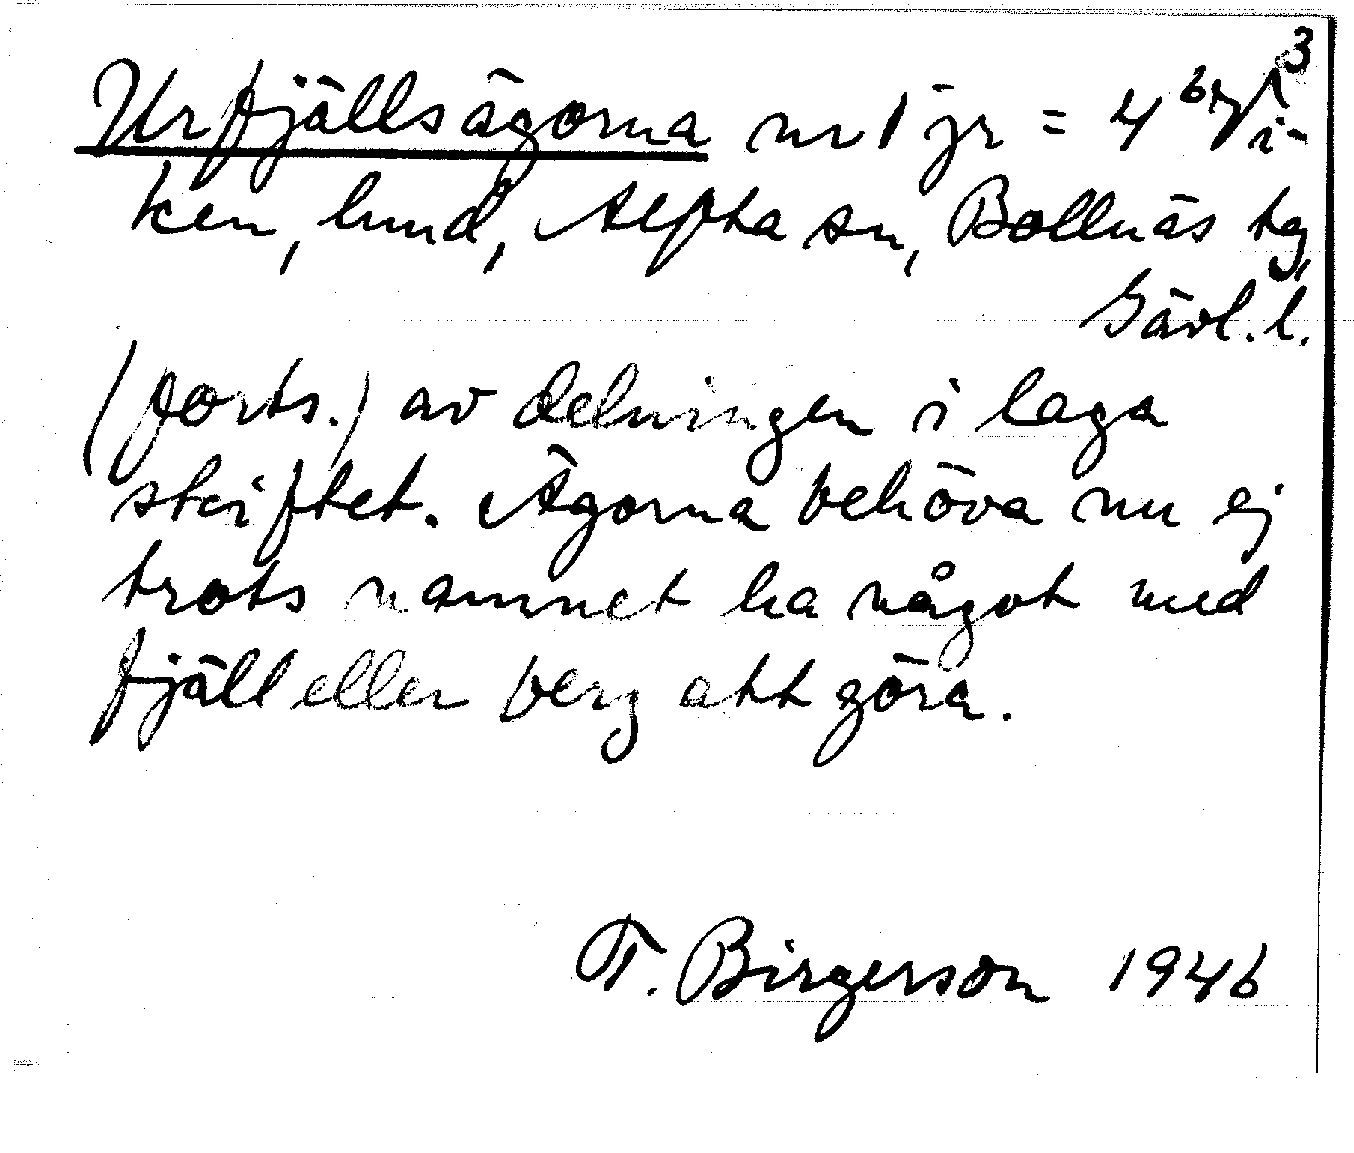 3
Urfjällsägorna nr 1 jr = 4 by i
ken, lund, Alfta sn, Bollnäs tg,
Gävl. l.
(forts.) av delningen i laga
skiftet. Ägorna behöva nu ej
trots namnet ha något med
fjäll eller berg att göra.
F. Birgerson 1946